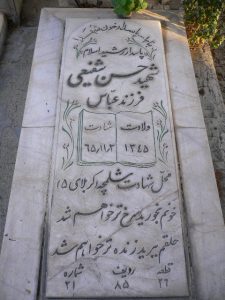 پاسدار رشید اسلام
شهید حسن شفیعی
فرزند عباس
ولادت شهادت
۱۳۴۵ ۶۵/۱۱/۲
محل شهادت شلمچه (کربلای ۵)
خونم بخورید سرخ تر خواهم شد
حلقم ببرید زنده تر خواهم شد
قطعه ردیف شماره
۲۶ ۸۵ ۲۱